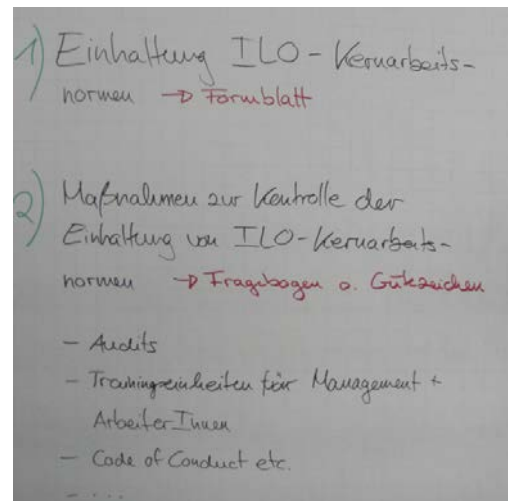 1) Einhaltung ILO-Kernarbeits-
normen → Formblatt
2) Maßnahmen zur Kontrolle der
Einhaltung von ILO-Kernarbeits-
normen → Fragebogen o. Gütezeichen
- Audits
- Trainingseinheiten für Management +
ArbeiterInnen
- Code of Conduct etc.
- ...